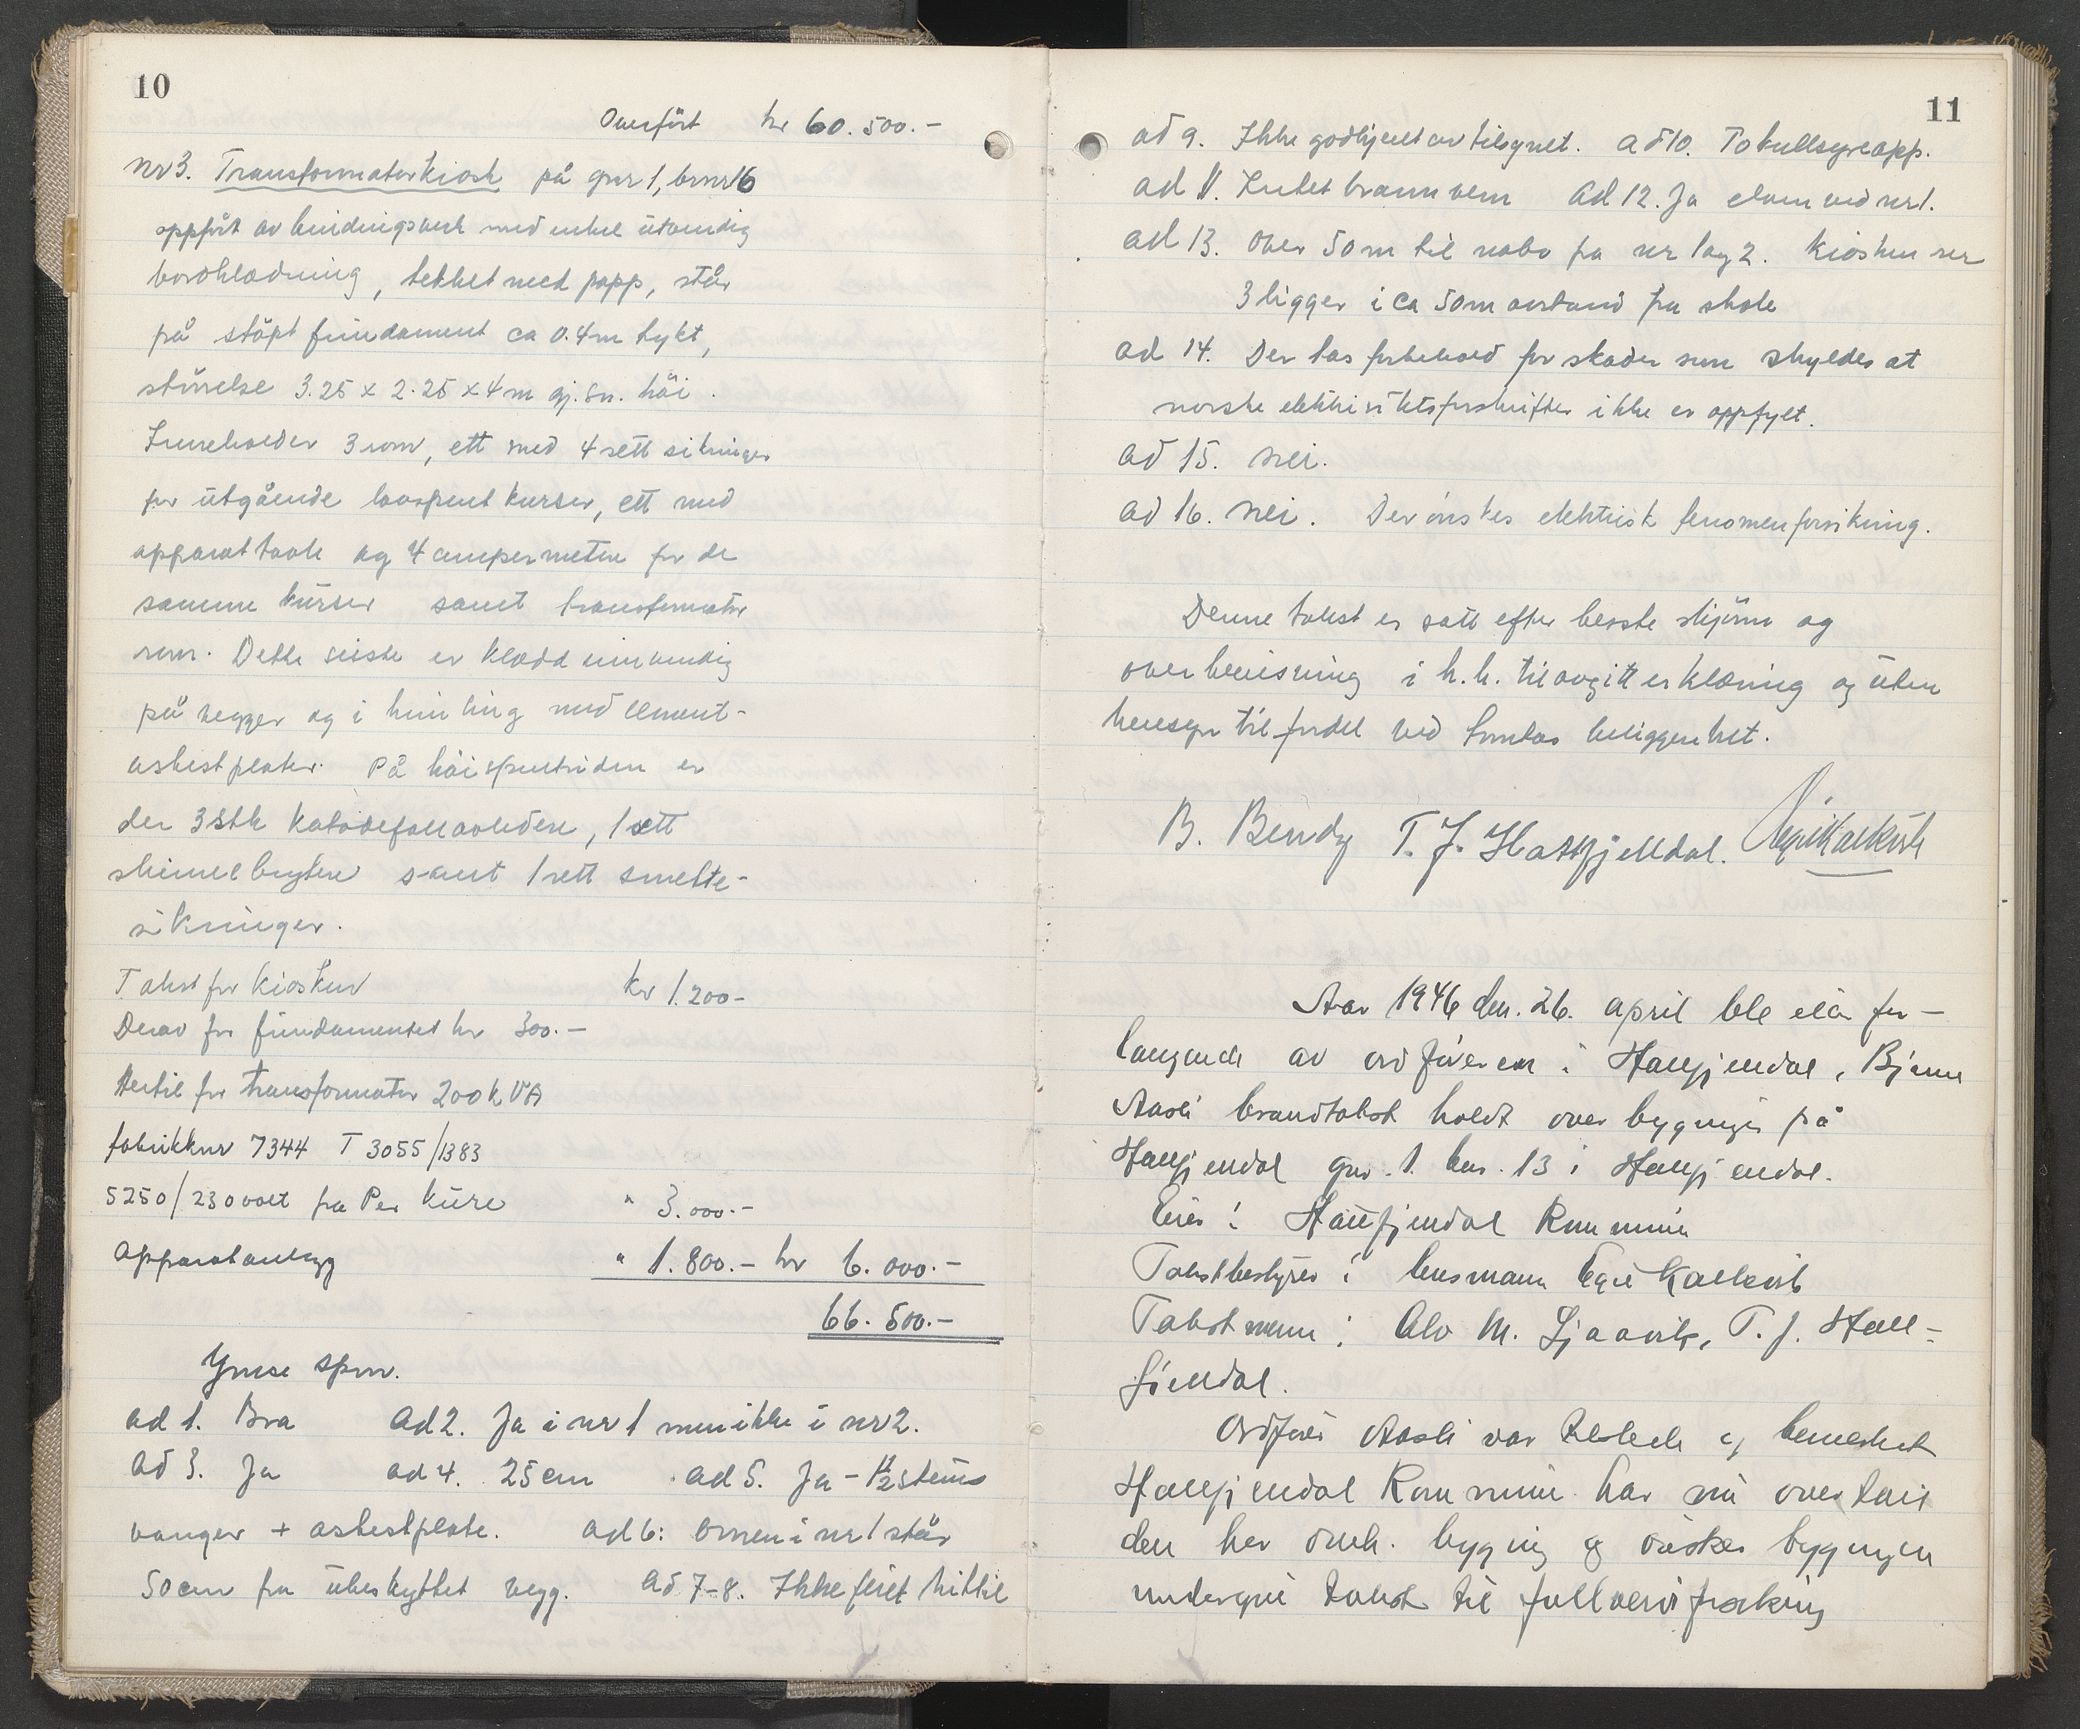 10
Overfört kr 60.500.-
nr 3. Transformatorkiosk på gnr 1, brnr 16
oppfört av bindingsverk med enkel utvendig
bordklædning, tekket med papp, står
på stöpt fundament ca 0.4 m tykt,
störrelse 3.25 x 2.25 x 4 m gj.sn. höi.
Inneholder 3 rom, ett med 4 sett sikringer
for utgående lavspent kurser, ett med
apparattavle og 4 ampermetre for de
samme kurser samt transformator
rom. Dette siste er klædd innvendig
på vegger og i himling med cement-
asbestplater. På höispentsiden er
der 3 stk katodefallavledere, 1 sett
skinnebrytere samt 1 sett smelte-
sikringer.
Takst for kiosken kr 1.200-
Derav for fundamentet kr 300.-
Hertil for transformator 200 k VA
fabrikknr 7344 T 3055/1383
5250/230 volt fra Per Kure " 3.000.-
Apparatanlegg " 1.800.- kr 6.000.-
66.500.-
Ymse spm.
ad 1. Bra ad 2. Ja i nr 1 men ikke i nr 2.
ad 3. Ja ad 4. 25 cm ad 5. Ja - 1/2 stens
vanger + asbestplate. ad 6: ovnen i nr 1 står
50 cm fra ubeskyttet vegg. ad 7-8. Ikke feiet hittil
11
ad 9. Ikke godkjent av tilsynet. ad 10. To kullsyreapp.
ad 11. Intet brannvern ad 12. Ja elven ved nr 1.
ad 13. Over 50 m til nabo fra nr 1 og 2. Kiosken nr
3 ligger i ca 50 m avstand fra skole
ad 14. Der tas forbehold for skader som skyldes at
norske elektrisitetsforskrifter ikke er oppfylt.
ad 15. Nei.
ad 16. Nei. Der önskes elektrisk fenomenforsikring.
Denne takst er satt efter beste skjönn og
overbevisning i h.h. til avgitt erklæring og uten
hensyn til fordel ved tomtas beliggenhet.
B. Bendz T. J. Hauffjelldal.
Aar 1946 den. 26. april ble efter for-
langende av ordföreren i Hauffjendal, Bjarne
Aasli brandtakst holdt over bygninger på
Hauffjendal gnr. 1. bnr. 13 i Hauffjendal.
Eier: Hauffjendal Kommune
Takstbestyrer: lensmann Egil Kalkvik
Takstmenn: Alv M. Ljaavik, T. J. Hauf-
fjendal.
Ordförer Aasli var tilstede og bemerket
Hauffjendal Kommune har nu overtatt
den her omh. bygning og önsker bygningen
undergitt takst til fullverdiforsikring